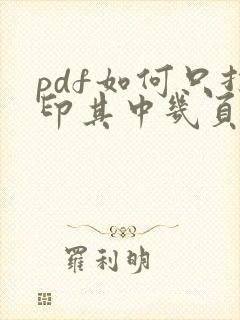 pdf如何只打
印其中幾頁
羅利明